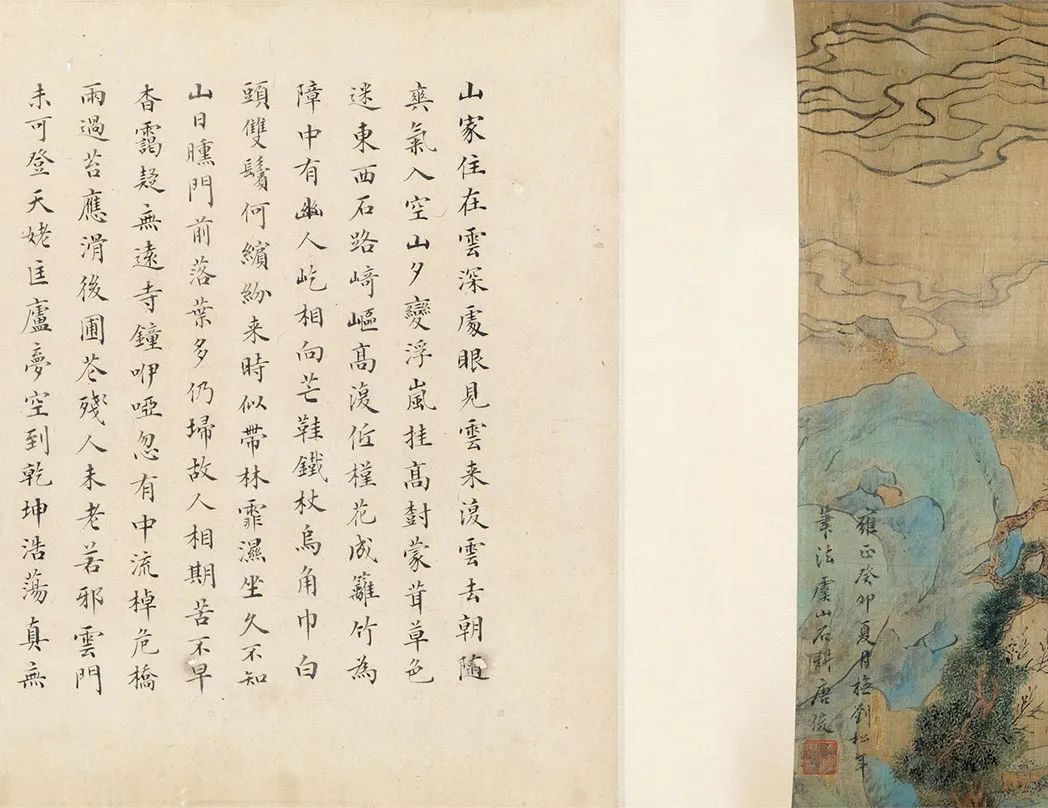 雍正癸卯夏月橅劉松年
筆法虞山石畊唐俊
山家住在雲深處眼見雲来復雲去朝随
爽氣入空山夕變浮嵐挂髙樹蒙茸草色
迷東西石路﨑嶇髙復低槿花成籬竹為
障中有幽人屹相向芒鞋鐵杖烏角巾白
頭雙鬢何繽紛来時似帶林霏濕坐久不知
山日曛門前落葉多仍埽故人相期苦不早
杳靄疑無遠寺鐘咿啞忽有中流棹危橋
雨過苔應滑後圃花殘人未老若邪雲門
未可登天姥匡廬夢空到乾坤浩蕩真無